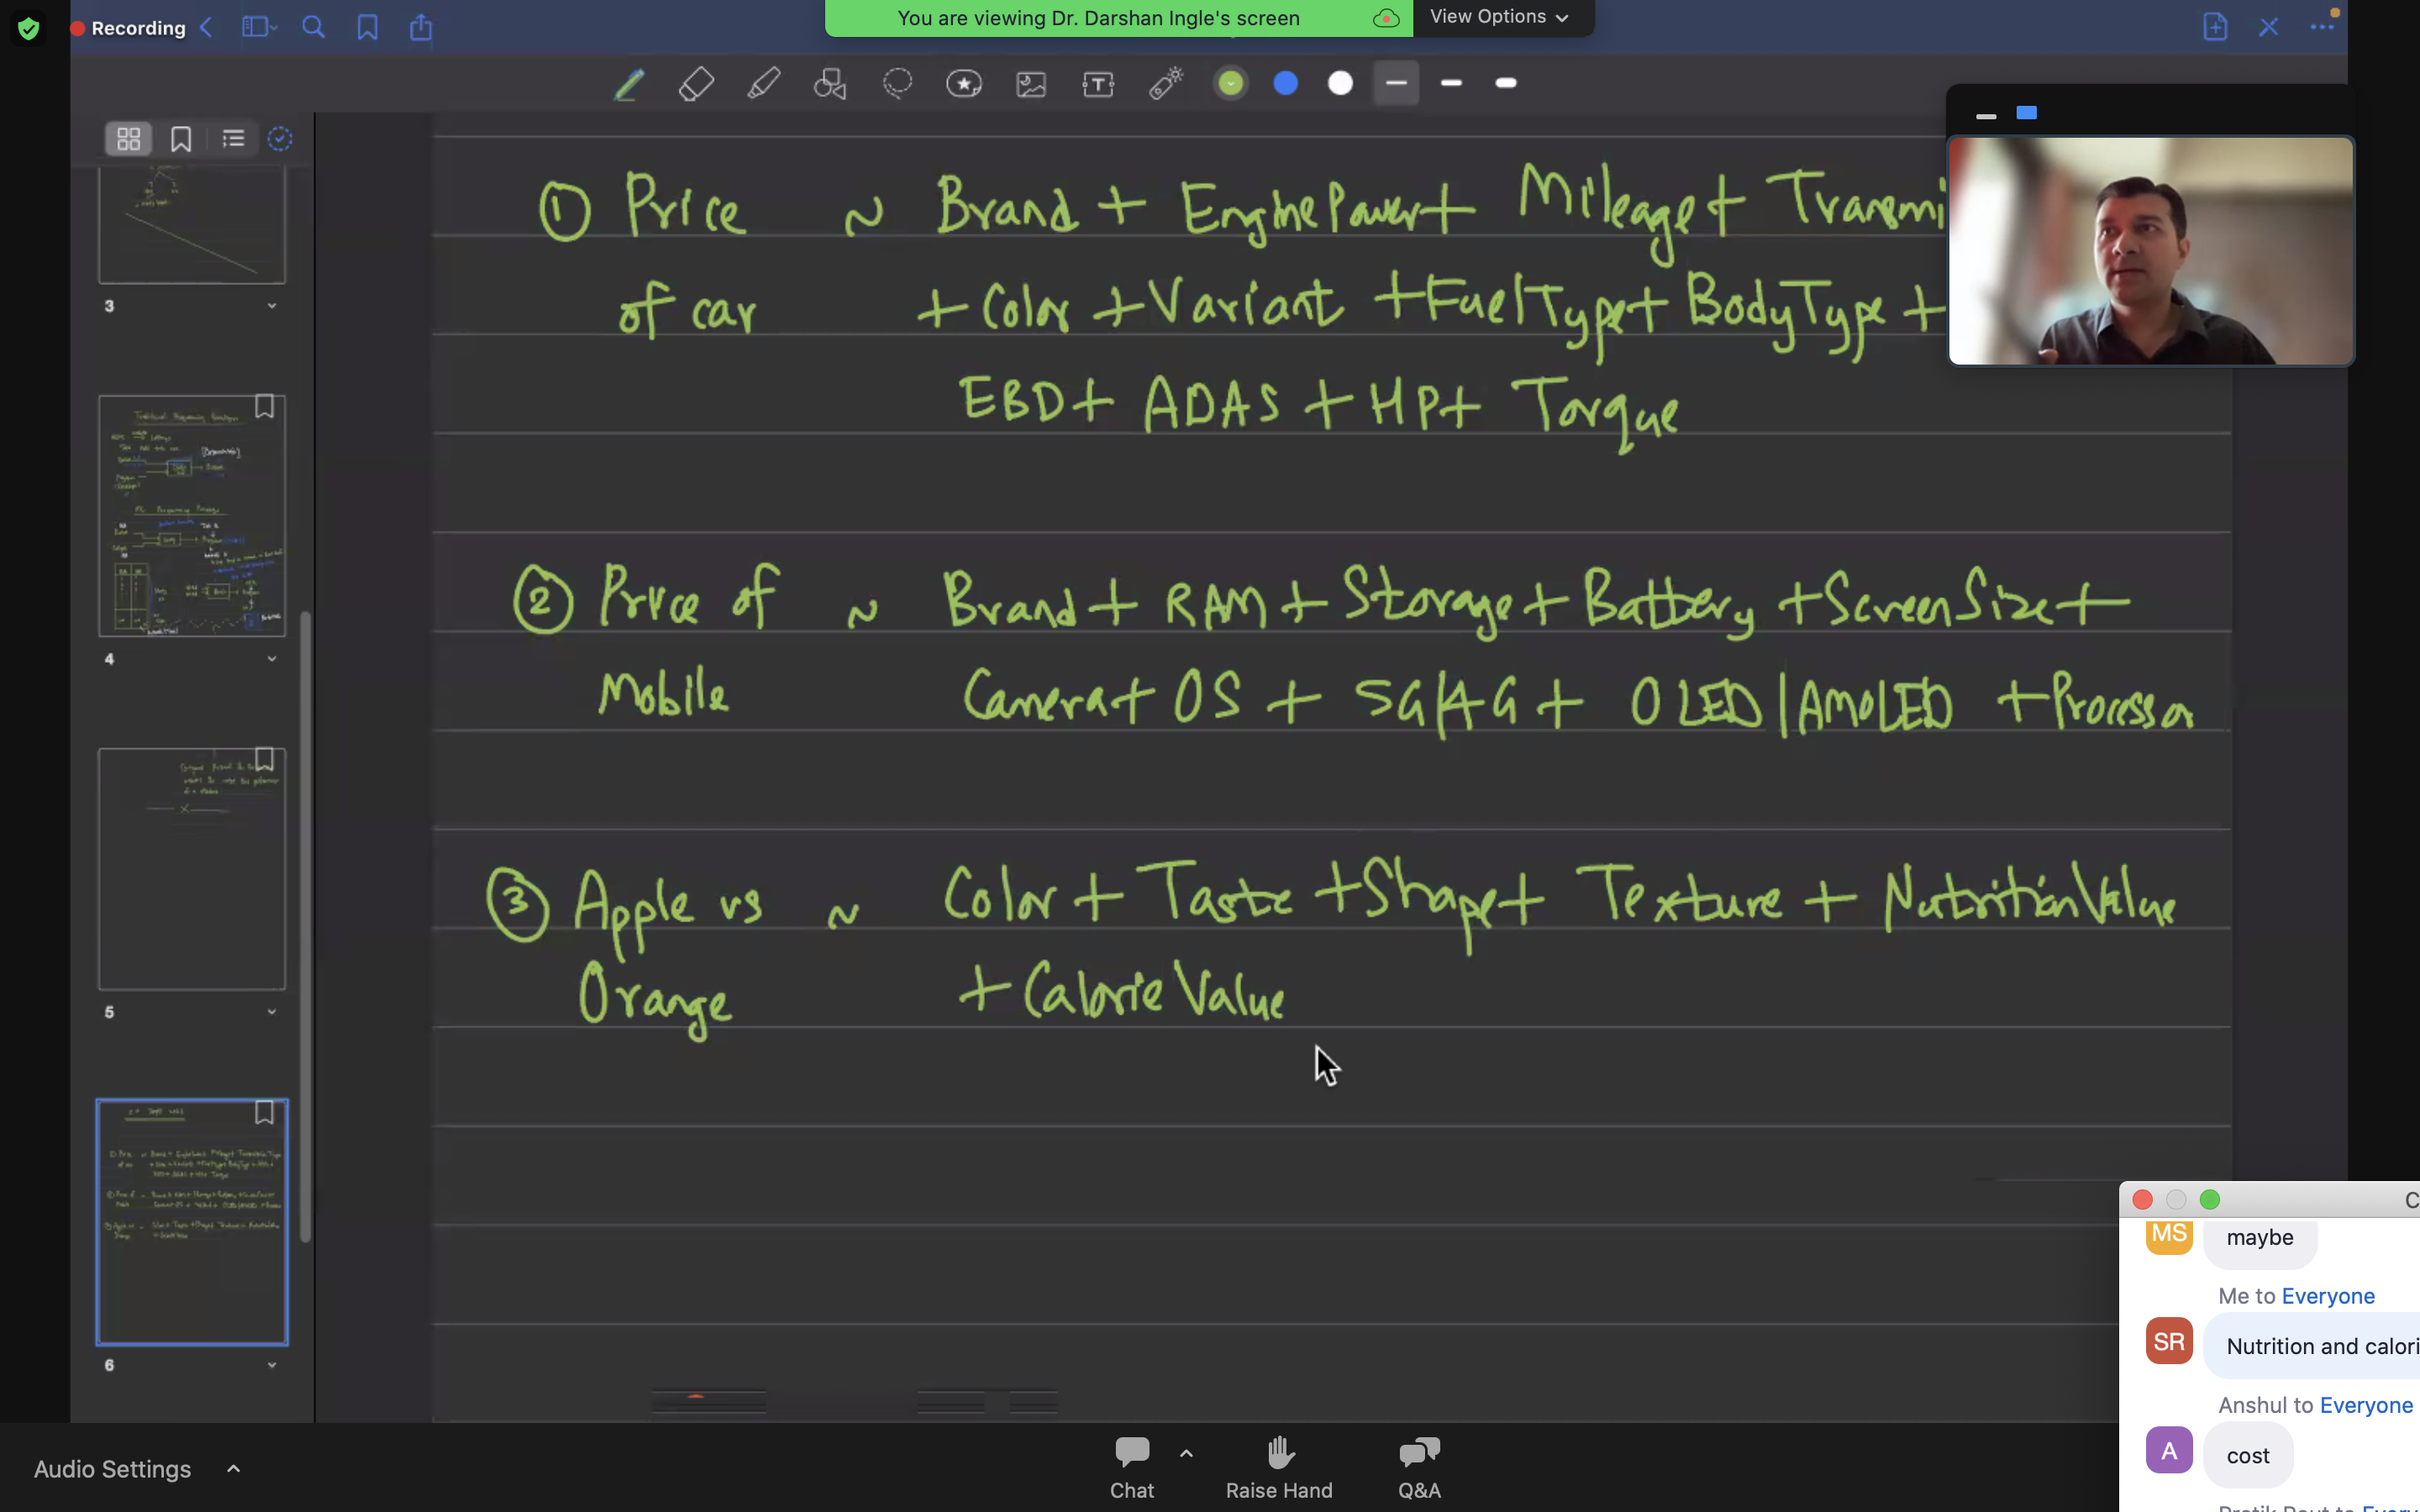 Recording
You are viewing Dr. Darshan Ingle's screen
View Options
① Price ~ Brand + EnginePower + Mileage + Transmi
of car + Color + Variant + FuelType + BodyType +
EBD + ADAS + HP + Torque
② Price of ~ Brand + RAM + Storage + Battery + ScreenSize +
Mobile Camera + OS + 5G/4G + OLED | AMOLED + Processor
③ Apple vs ~ Color + Taste + Shape + Texture + NutritionValue
Orange + CalorieValue
3
4
5
6
MS
maybe
Me to Everyone
SR
Nutrition and calori
Anshul to Everyone
A
cost
Audio Settings
Chat
Raise Hand
Q&A